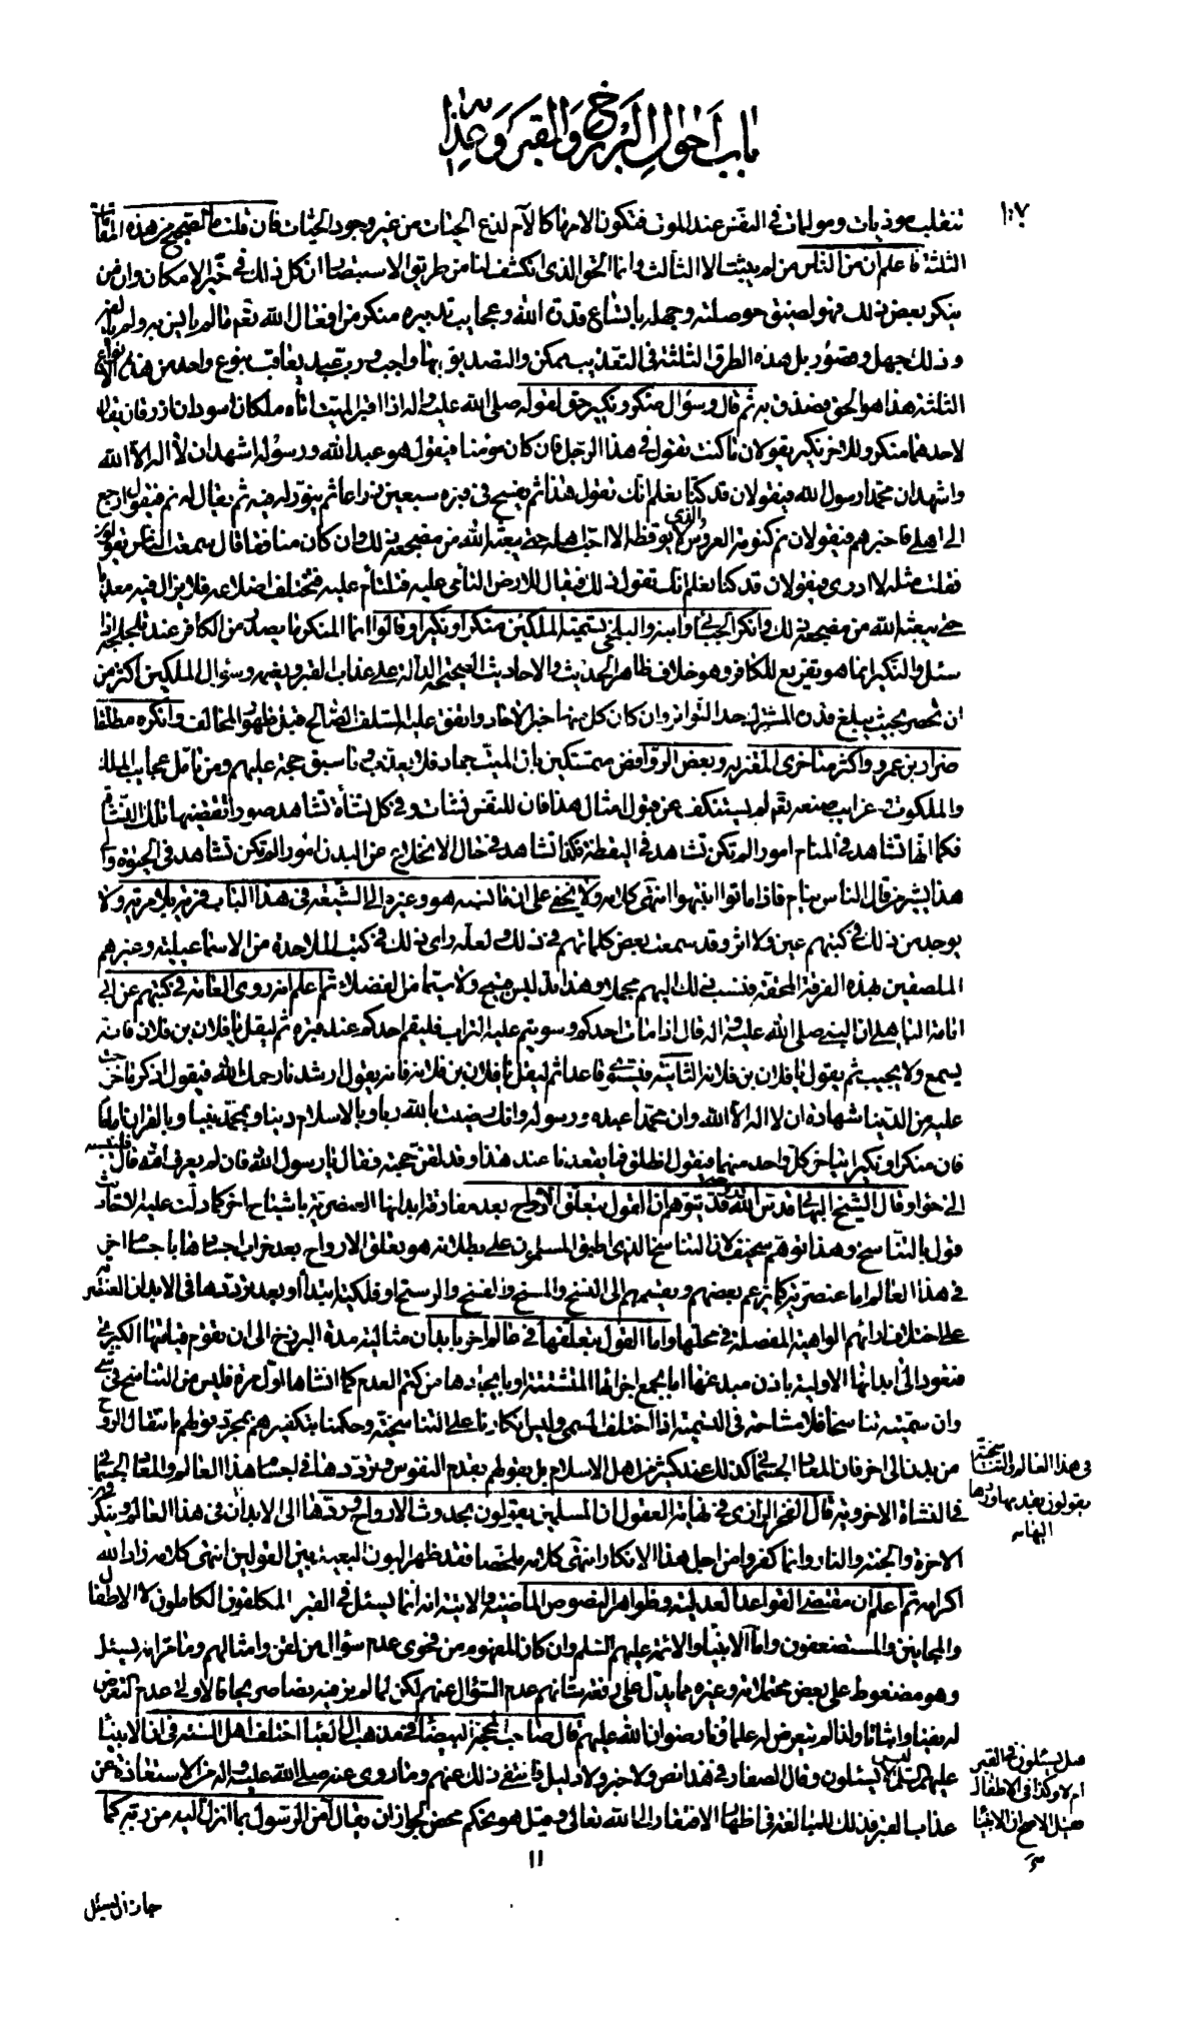 باب احوال البرزخ والقبر وعذابه
١٠٧
تنقلب موذيات ومولمات في النفس عند الموت فتكون الامها كالام لدغ الحيات من غير وجود الحيات فان قلت ما الصحيح من هذه المقامات
الثلثة فاعلم ان من الناس من لم يثبت الا الثالث وانما الحق الذي انكشف لنا من طريق الاستبصار ان كل ذلك في حيز الامكان وان من
ينكر بعض ذلك فهو لضيق حوصلته وجهله باتساع قدرة الله وعجايب تدبيره منكر من افعال الله تعم ما لم يانس به ولم يالفه
وذلك جهل وقصور بل هذه الطرق الثلثة في التعذيب ممكن والتصديق بها واجب ورب عبد يعاقب بنوع واحد من هذه الانواع
الثلثة هذا هو الحق فصدق به ثم قال وسؤال منكر ونكير حق لقوله صلى الله عليه واله اذا اقبر الميت اتاه ملكان اسودان ازرقان يقال
لاحدهما منكر وللاخر نكير يقولان ما كنت تقول في هذا الرجل فان كان مومنا فيقول هو عبد الله ورسوله اشهد ان لا اله الا الله
واشهد ان محمدا رسول الله فيقولان قد كنا نعلم انك تقول هذا ثم يفسح في قبره سبعين ذراعا ثم ينور له فيه ثم يقال له نم فيقول ارجع
الى اهلي فاخبرهم فيقولان نم كنومة العروس الذي لا يوقظه الا احب اهله حتى يبعثه الله من مضجعه ذلك وان كان منافقا قال سمعت الناس يقولون
فقلت مثله لا ادري فيقولان قد كنا نعلم انك تقول ذلك فيقال للارض التأمي عليه فتلتأم عليه فتختلف اضلاعه فلا يزال فيه معذبا
حتى يبعثه الله من مضجعه ذلك وانكر الجبائي وابنه والبلخي تسمية الملكين منكرا ونكيرا وقالوا انما المنكر ما يصدر من الكافر عند تلجلجه اذا
سئل والنكير انما هو تقريع للكافر وهو خلاف ظاهر الحديث والاحاديث الصحيحة الدالة على عذاب القبر ونعيمه وسؤال الملكين اكثر من
ان تحصر بحيث يبلغ قدره المشترك حد التواتر وان كان كل منها خبر الاحاد واتفق عليه السلف الصالح قبل ظهور المخالف وانكره مطلقا
ضرار بن عمرو واكثر متاخري المعتزلة وبعض الروافض متمسكين بان الميت جماد فلا يعذب وما سبق حجة عليهم ومن تامل عجايب الملك
والملكوت وغرايب صنعه تعم لم يستنكف عن قبول امثال هذا فان للنفس نشات وفي كل نشأة تشاهد صورا تقتضيها تلك النشأة
فكما انها تشاهد في المنام امورا لم تكن تشاهد في اليقظة فكذا تشاهد في حال الانخلاع عن البدن امورا لم تكن تشاهد في الحيوة والى
هذا يشير من قال الناس نيام فاذا ماتوا انتبهوا انتهى كلامه ولا يخفى على ان ما نسبه هو وغيره الى الشيعة في هذا الباب فرية بلا مرية ولا
يوجد من ذلك في كتبهم عين ولا اثر وقد سمعت بعض كلماتهم في ذلك ولعله راى ذلك في كتب الملاحدة من الاسماعيلية وغيرهم
الملصقين بهذه الفرقة المحقة فنسب ذلك اليهم مجملا وهذا تدليس قبيح ولا سيما من الفضلاء ثم اعلم انه روى العامة في كتبهم عن ابي
امامة الباهلي ان النبي صلى الله عليه واله قال اذا مات احدكم وسويتم عليه التراب فليقم احدكم عند قبره ثم ليقل يا فلان بن فلان فانه
يسمع ولا يجيب ثم يقول يا فلان بن فلانة الثانية فيستوي قاعدا ثم ليقل يا فلان بن فلانة فانه يقول ارشدنا رحمك الله فيقول اذكر ما خرجت
عليه من الدنيا شهادة ان لا اله الا الله وان محمدا عبده ورسوله وانك رضيت بالله ربا وبالاسلام دينا وبمحمد نبيا وبالقران اماما
فان منكرا ونكيرا يتاخر كل واحد منهما فيقول انطلق فما يقعدنا عند هذا وقد لقن حجته فقال يا رسول الله فان لم يعرف امه قال فلينسبه
الى حوا وقال الشيخ البهائي قدس الله روحه قد يتوهم ان القول بتعلق الارواح بعد مفارقة ابدانها العنصرية باشباح اخر كما دلت عليه الاحاديث
قول بالتناسخ وهذا توهم سخيف لان التناسخ الذي اطبق المسلمون على بطلانه هو تعلق الارواح بعد خراب اجسامها باجسام اخر
في هذا العالم اما عنصرية كما يزعم بعضهم ويقسمهم الى النسخ والمسخ والفسخ والرسخ او فلكية ابتداء او بعد ترددها في الابدان العنصرية
على اختلاف ارائهم الواهية المفصلة في محلها واما القول بتعلقها في عالم اخر بابدان مثالية مدة البرزخ الى ان تقوم قيامتها الكبرى
فتعود الى ابدانها الاولية باذن مبدعها اما بجمع اجزائها المتشتتة او بايجادها من كتم العدم كما انشاها اول مرة فليس من التناسخ في شيء
وان سميته تناسخا فلا مشاحة في التسمية اذا اختلف المسمى وليس انكارنا على التناسخية وحكمنا بتكفيرهم بمجرد قولهم بانتقال الروح
من بدن الى اخر فان المعاد الجسماني كذلك عند كثير من اهل الاسلام بل بقولهم بقدم النفوس وترددها في اجسام هذا العالم والمعاد الجسماني
في النشاة الاخروية قال الفخر الرازي في نهاية العقول ان المسلمين يقولون بحدوث الارواح وردها الى الابدان لا في هذا العالم وينكرون
الاخرة والجنة والنار وانما كفروا من اجل هذا الانكار انتهى كلامه ملخصا فقد ظهر البون البعيد بين القولين انتهى كلامه زاد الله
اكرامه ثم اعلم ان مقتضى القواعد العدلية وظواهر النصوص الماضية والاتية انه انما يسئل في القبر المكلفون الكاملون لا الاطفال
والمجانين والمستضعفون واما الانبياء والائمة عليهم السلم وان كان المفهوم من فحوى عدم سؤال من لقن وامثالهم وما مر انه يسئل
وهو مضغوط على بعض محتملاته وغيره مما يدل على رفعة شانهم عدم السؤال عنهم لكن لما لم يرد فيه نصا صريحا فالاولى عدم التعرض
له نفيا واثباتا ولذا لم يتعرض له علماؤنا رضوان الله عليهم قال صاحب المحجة البيضاء في مذهب ال العبا اختلف اهل السنة في ان الانبياء
عليهم السلم هل يسئلون وقال الصفار ليس في هذا نص ولا خبر ولا دليل فانتفى ذلك عنهم وما روي عنه صلى الله عليه واله من الاستعاذة عن
عذاب القبر فذلك للمبالغة في اظهار الافتقار الى الله تعالى وقيل هو تحكم محض لجواز ان يقال امن الرسول بما انزل اليه من ربه كما
في هذا العالم والتناسخية
يقولون بقدمها وردها
اليها في
هل يسئلون في القبر
ام لا وكذا في الاطفال
فقيل الاصح ان الانبياء
١١
جاز ان يسئل